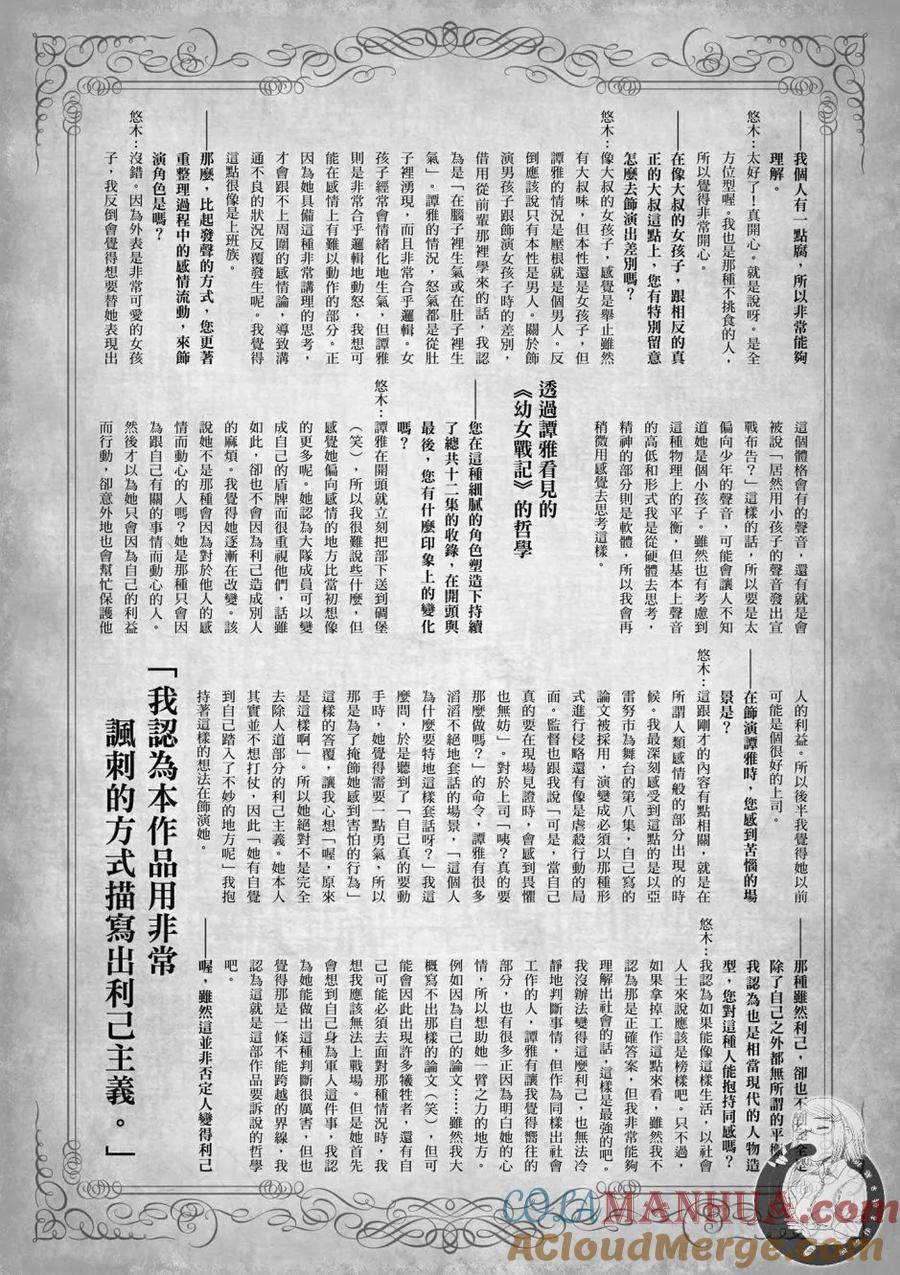 ——我個人有一點腐，所以非常能夠
理解。
悠木：太好了！真開心。就是說呀。是全
方位型喔。我也是那種不挑食的人，
所以覺得非常開心。
——在像大叔的女孩子，跟相反的真
正的大叔這點上，您有特別留意
怎麼去飾演出差別嗎？
悠木：像大叔的女孩子，感覺是舉止雖然
有大叔味，但本性還是女孩子，但
譚雅的情況是壓根就是個男人。反
倒應該說只有本性是男人。關於飾
演男孩子跟飾演女孩子時的差別，
借用從前輩那裡學來的話，我認
為是「在腦子裡生氣或在肚子裡生
氣」。譚雅的情況，怒氣都是從肚
子裡湧現，而且非常合乎邏輯。女
孩子經常會情緒化地生氣，但譚雅
則是非常合乎邏輯地動怒，我想可
能在感情上有難以動作的部分。正
因為她具備這種非常講理的思考，
才會跟不上周圍的感情論，導致溝
通不良的狀況反覆發生呢。我覺得
這點很像是上班族。
——那麼，比起發聲的方式，您更著
重整理過程中的感情流動，來飾
演角色是嗎？
悠木：沒錯。因為外表是非常可愛的女孩
子，我反倒會覺得想要替她表現出
這個體格會有的聲音，還有就是會
被說「居然用小孩子的聲音發出宣
戰布告？」這樣的話，所以要是太
偏向少年的聲音，可能會讓人不知
道她是個小孩子。雖然也有考慮到
這種物理上的平衡，但基本上聲音
的高低和形式我是從硬體去思考，
精神的部分則是軟體，所以我會再
稍微用感覺去思考這樣。
透過譚雅看見的
《幼女戰記》的哲學
——您在這種細膩的角色塑造下持續
了總共十二集的收錄，在開頭與
最後，您有什麼印象上的變化
嗎？
悠木：譚雅在開頭就立刻把部下送到碉堡
（笑），所以我很難說些什麼，但
感覺她偏向感情的地方比當初想像
的更多呢。她認為大隊成員可以變
成自己的盾牌而很重視他們，話雖
如此，卻也不會因為利己造成別人
的麻煩。我覺得她逐漸在改變。該
說她不是那種會因為對於他人的感
情而動心的人嗎？她是那種只會因
為跟自己有關的事情而動心的人。
然後才以為她只會因為自己的利益
而行動，卻意外地也會幫忙保護他
人的利益。所以後半我覺得她以前
可能是個很好的上司。
——在飾演譚雅時，您感到苦惱的場
景是？
悠木：這跟剛才的內容有點相關，就是在
所謂人類感情般的部分出現的時
候。我最深刻感受到這點的是以亞
雷努市為舞台的第八集，自己寫的
論文被採用，演變成必須以那種形
式進行侵略還有像是虐殺行動的局
面。監督也跟我說「可是，當自己
真的要在現場見證時，會感到畏懼
也無妨」。對於上司「咦？真的要
那麼做嗎？」的命令，譚雅有很多
滔滔不絕地套話的場景，「這個人
為什麼要特地這樣套話呀？」我這
麼問，於是聽到了「自己真的要動
手時，她覺得需要一點勇氣，所以
那是為了掩飾她感到害怕的行為」
這樣的答覆，讓我心想「喔，原來
是這樣啊」。所以她絕對不是完全
去除人道部分的利己主義。她本人
其實並不想打仗，因此「她有自覺
到自己踏入了不妙的地方呢」我抱
持著這樣的想法在飾演她。
「我認為本作品用非常
諷刺的方式描寫出利己主義。」
——那種雖然利己，卻也不
除了自己之外都無所謂的平衡
我認為也是相當現代的人物造
型，您對這種人能抱持同感嗎？
悠木：我認為如果能像這樣生活，以社會
人士來說應該是榜樣吧。只不過，
如果拿掉工作這點來看，雖然我不
認為那是正確答案，但我非常能夠
理解出社會的話，這樣是最強的吧。
我沒辦法變得這麼利己，也無法冷
靜地判斷事情，但作為同樣出社會
工作的人，譚雅有讓我覺得嚮往的
部分，也有很多正因為明白她的心
情，所以想助她一臂之力的地方。
例如因為自己的論文……雖然我大
概寫不出那樣的論文（笑），但可
能會因此出現許多犧牲者，還有自
己可能必須去面對那種情況時，我
想我應該無法上戰場。但是她首先
會想到自己身為軍人這件事，我認
為她能做出這種判斷很厲害，但也
覺得那是一條不能跨越的界線，我
認為這就是這部作品要訴說的哲學
吧。
——喔，雖然這並非否定人變得利己
COLAMANHUA.com
ACloudMerge.com